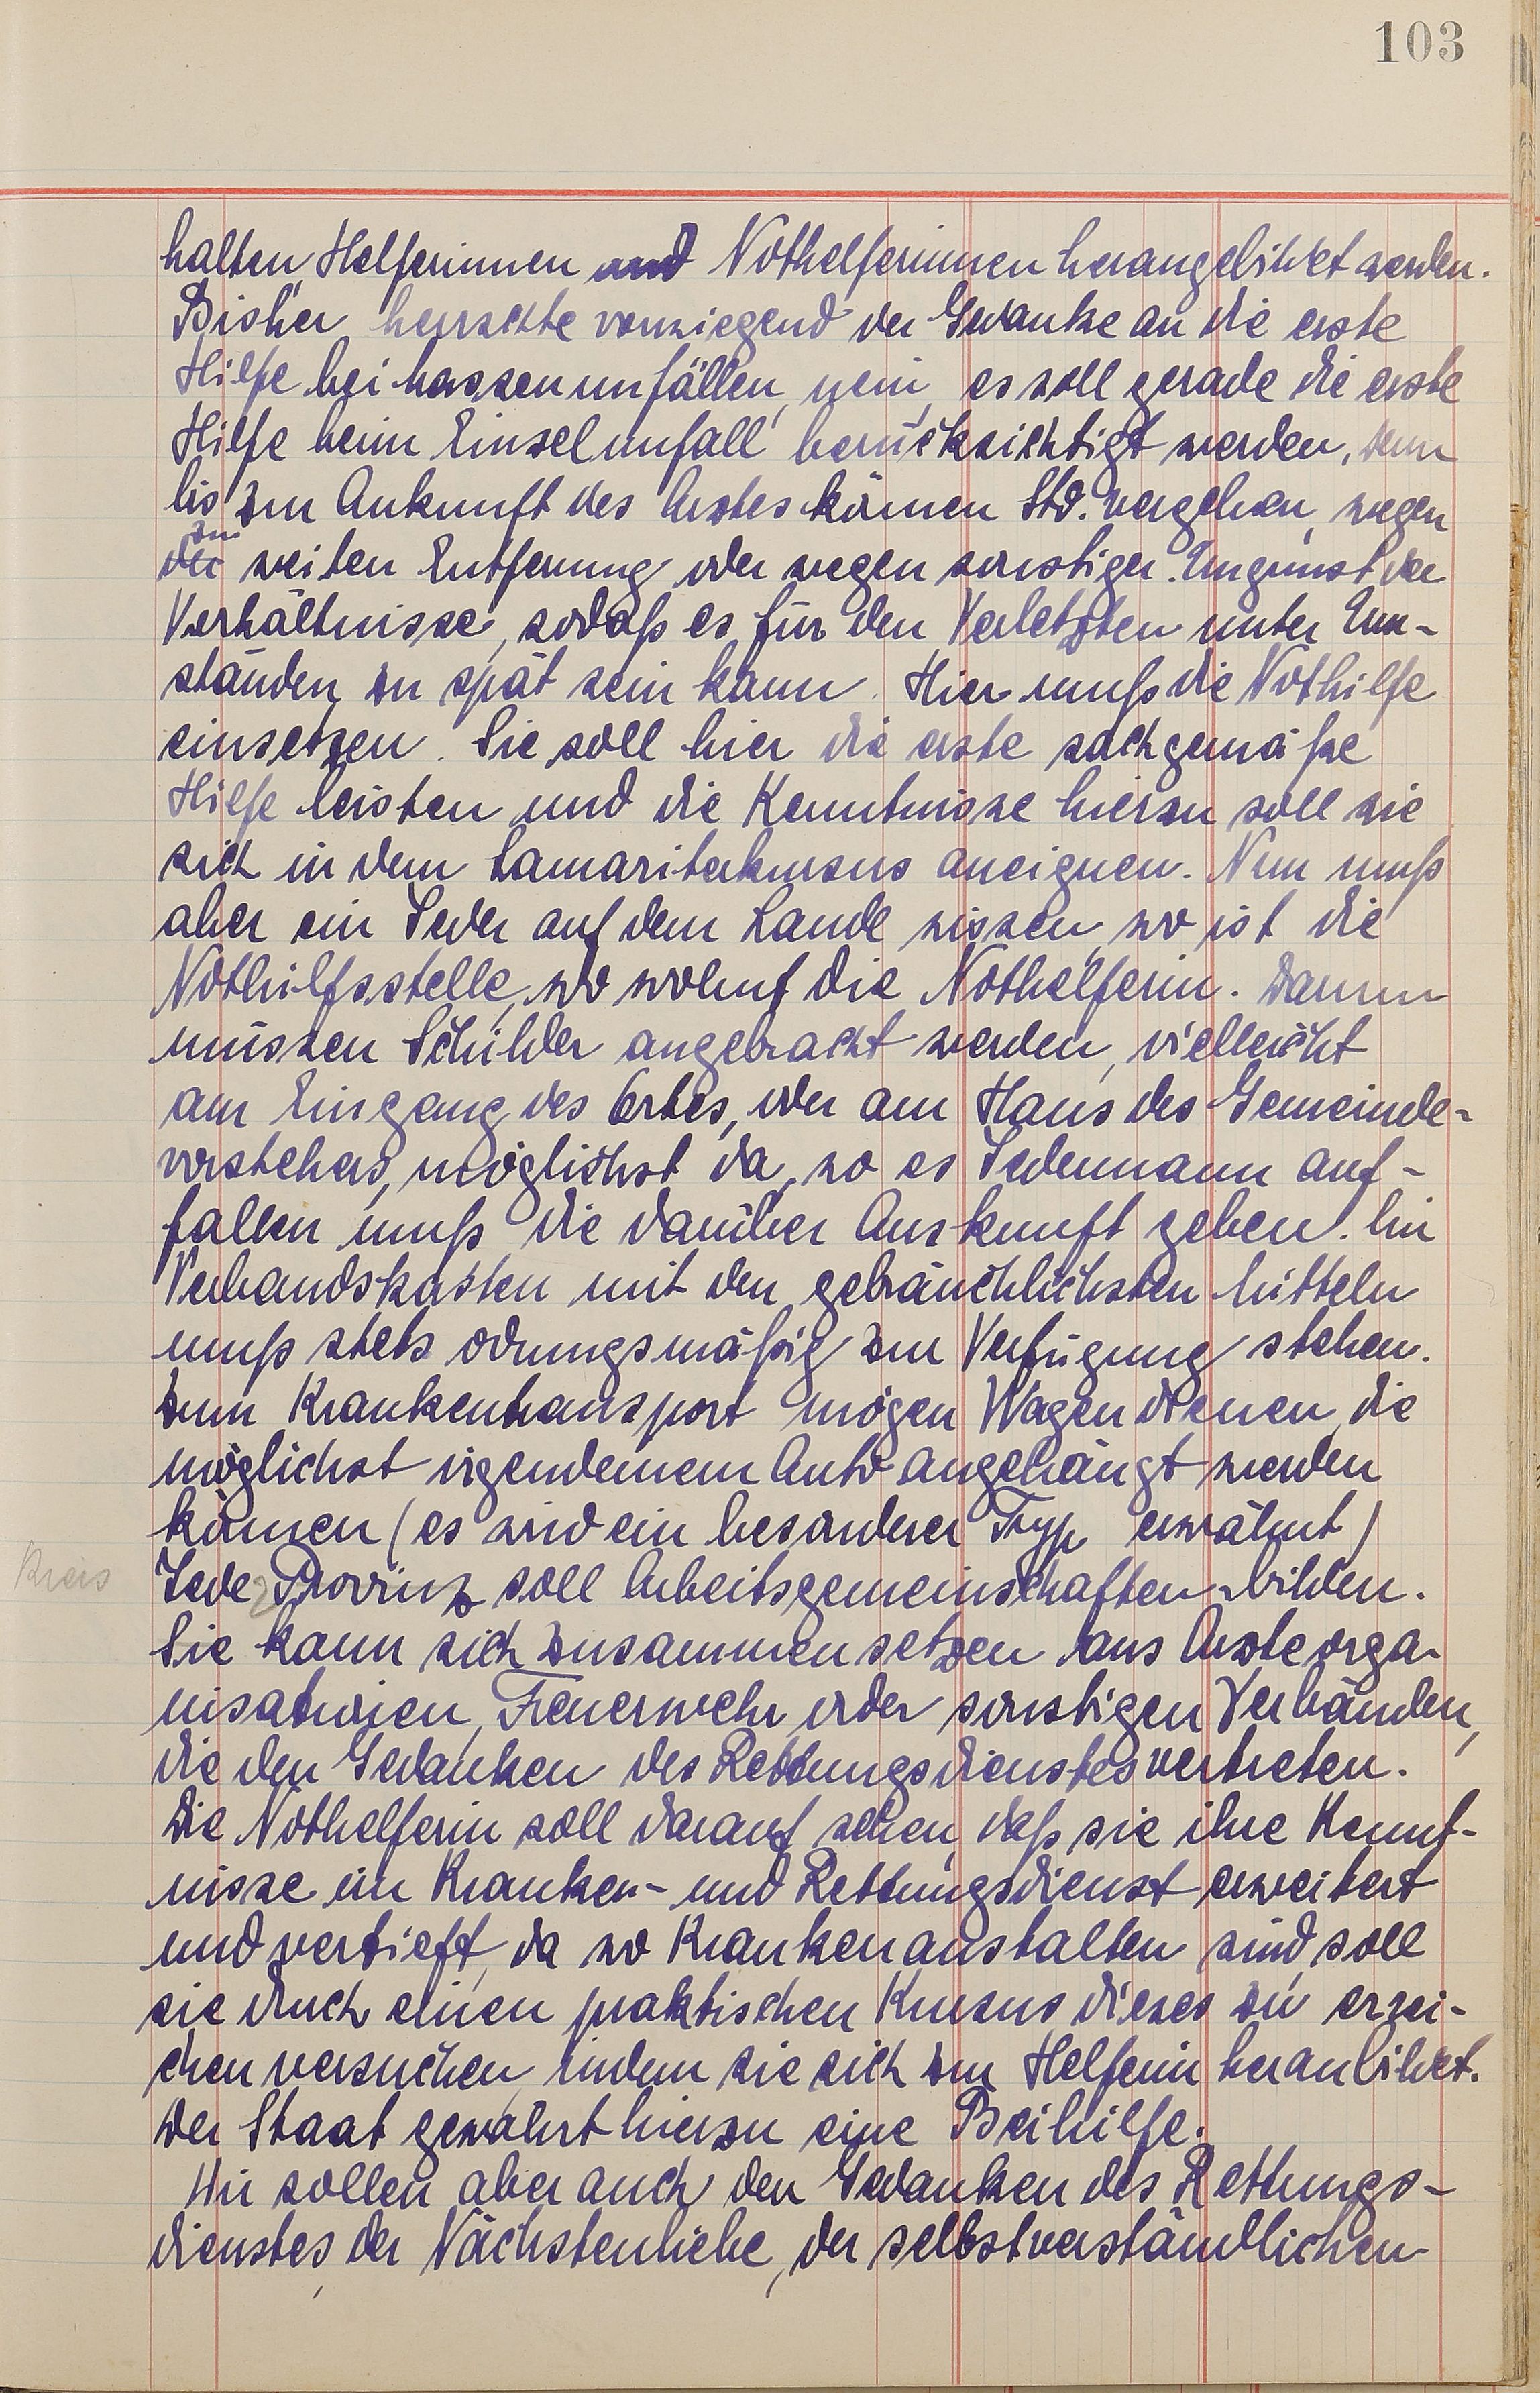 103
halten, Helferinnen und Nothelferinnen herangebildet werden.
Bisher herrschte vorwiegend der Gedanke an die erste
Hilfe bei Massenunfällen, nein, es soll gerade die erste
Hilfe beim Einzelunfall berücksichtigt werden, denn
bis zur Ankunft des Arztes können Std. vergehen, wegen
zu
der weiten Entfernung oder wegen sonstiger Ungunst der
Verhältnisse, sodaß es für den Verletzten unter Um-
ständen zu spät sein kann. Hier muß die Nothilfe
einsetzen. Sie soll hier die erste sachgemäße
Hilfe leisten und die Kenntnisse hierzu soll sie
sich in dem Samariterkursus aneignen. Nun muß
aber ein Jeder auf dem Lande wissen, wo ist die
Nothilfsstelle, wo wohnt die Nothelferin. Darum
müssen Schilder angebracht werden, vielleicht
am Eingang des Ortes, oder am Haus des Gemeinde-
vorstehers, möglichst da, wo es Jedermann auf-
fallen muß die darüber Auskunft geben. Ein
Verbandskasten mit den gebräuchlichsten Mitteln
muß stets ordnungsmäßig zur Verfügung stehen.
Zum Krankentransport mögen Wagen dienen, die
möglichst irgendeinem Auto angehängt werden
können (es wird ein besonderer Typ erwähnt)
Kreis
Jede Provinz soll Arbeitsgemeinschaften bilden.
Sie kann sich zusammensetzen aus Ärzteorga-
nisationen, Feuerwehr oder sonstigen Verbänden,
die den Gedanken des Rettungsdienstes vertreten.
Die Nothelferin soll darauf sehen, daß sie ihre Kennt-
nisse im Kranken- und Rettungsdienst erweitert
und vertieft, da wo Krankenanstalten sind, soll
sie durch einen praktischen Kursus dieses zu errei-
chen versuchen, indem sie sich zur Helferin heranbildet.
Der Staat gewährt hierzu eine Beihilfe.
Wir sollen aber auch den Gedanken des Rettungs-
dienstes, der Nächstenliebe, der selbstverständlichen